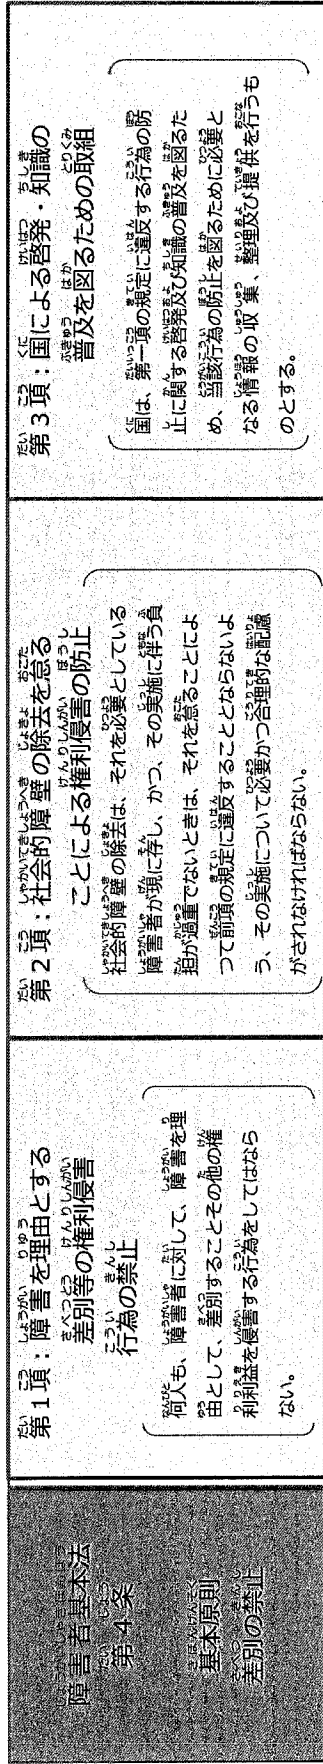 障害者基本法
第4条
基本原則
差別の禁止
第1項：障害を理由とする
差別等の権利侵害
行為の禁止
何人も、障害者に対して、障害を理
由として、差別することその他の権
利利益を侵害する行為をしてはなら
ない。
第2項：社会的障壁の除去を怠る
ことによる権利侵害の防止
社会的障壁の除去は、それを必要としている
障害者が現に存し、かつ、その実施に伴う負
担が過重でないときは、それを怠ることによ
つて前項の規定に違反することとならないよ
う、その実施について必要かつ合理的な配慮
がされなければならない。
第3項：国による啓発・知識の
普及を図るための取組
国は、第一項の規定に違反する行為の防
止に関する啓発及び知識の普及を図るた
め、当該行為の防止を図るために必要と
なる情報の収集、整理及び提供を行うも
のとする。